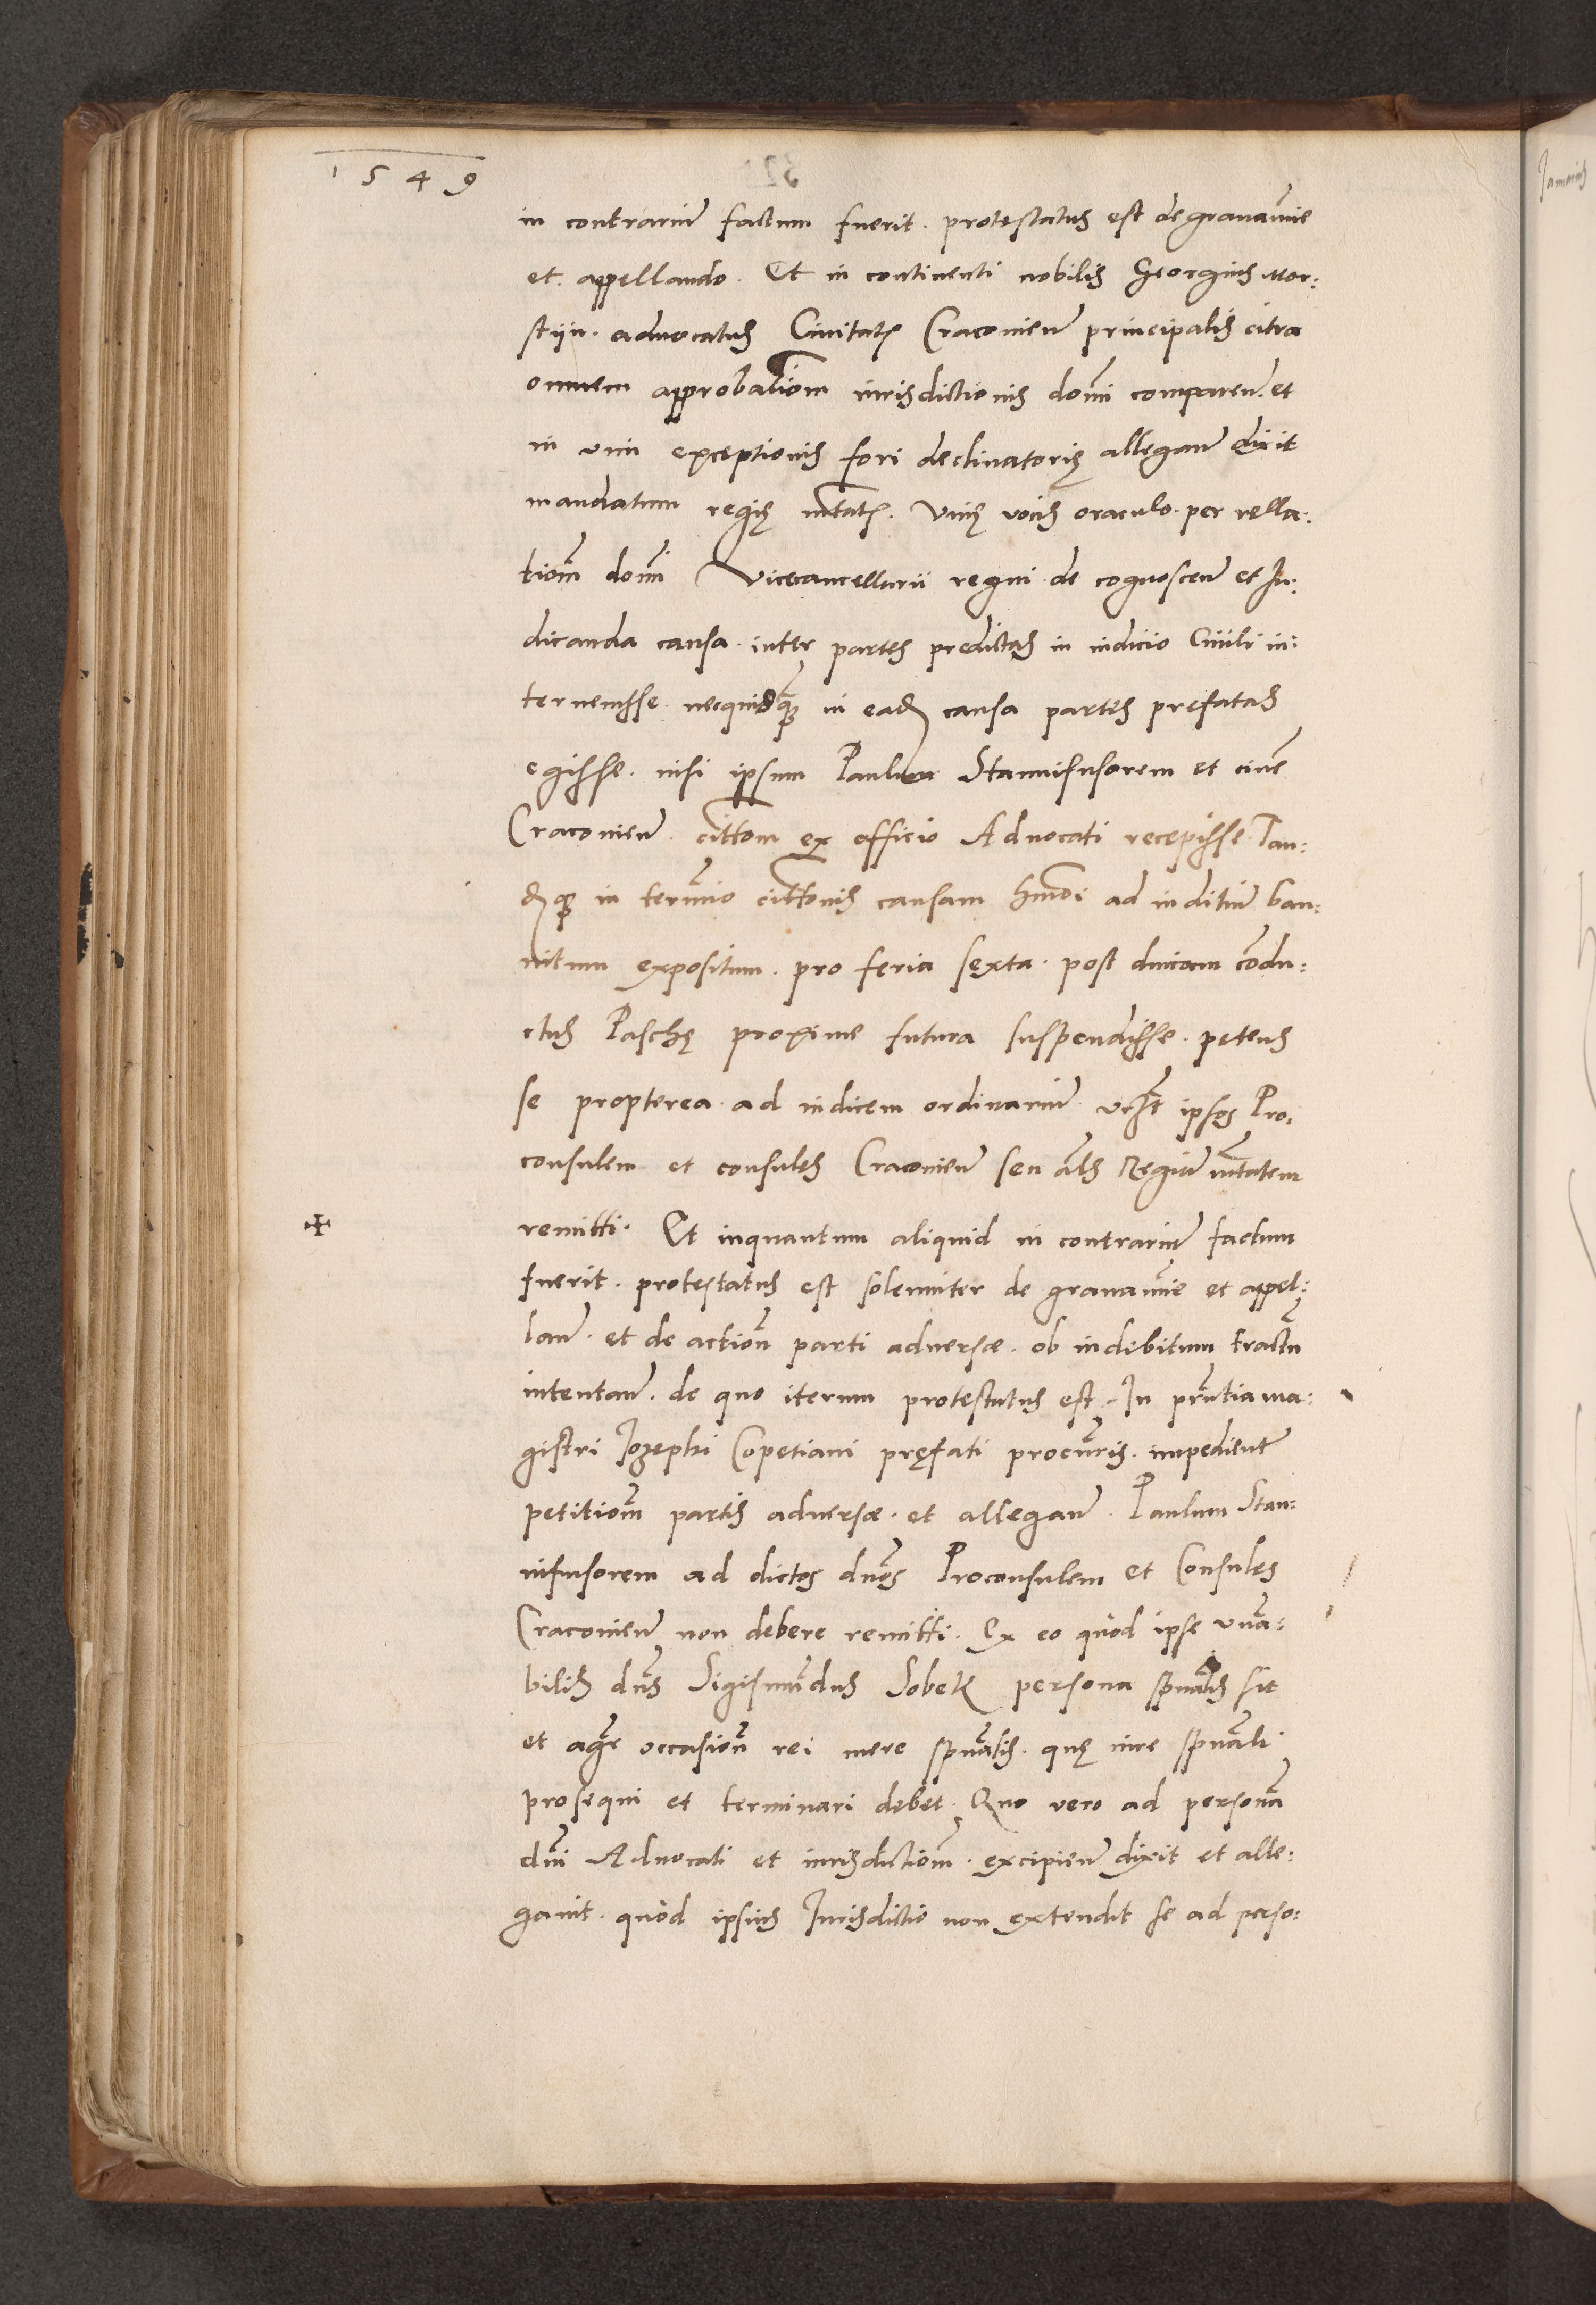 1549
in contrariũ factum fuerit. protestatus est de grauamĩe
et appellando. Et in continenti nobilis Georgius Mor:
stijn. aduocatus Ciuitatꝭ Cracovieñ principalis citra
omnem approbatiõm iurisdictionis domĩ compareñ. et
in vim exceptionis fori declinatorię allegañ dixit
mandatum regię mtatꝭ. Viuę vocis oraculo. per rella:
tiõm domĩ Vicecancellarii regni de cognosceñ et Iu:
dicanda causa. inter partes predictas in iudicio Ciuili in:
teruenisse. necquidq̃ꝫ in eadẽ causa partes prefatas
egisse. nisi ipsum Paulum Stannifusorem et ciuẽ
Cracovieñ. cittõm ex officio Aduocati recepisse. Tan:
dẽqꝫ in termĩo cittõnis causam hmõi ad iuditiũ ban:
nitum expositum. pro feria sexta. post dnicam cõdu:
ctus Paschę proxime futura suspendisse. petens
se propterea ad iudicem ordinariũ vcꝫt ipsos Pro.
consulem et consules Cracovieñ seu als̃ Regiã mtatem
remitti. Et inquantum aliquid in contrariũ factum
fuerit. protestatus est solenniter de grauamĩe et appel:
lañ. et de actiõn parti aduersæ. ob indebitum tractũ
intentañ. de quo iterum protestatus est. In pñtia ma:
gistri Iozephi Copetiani pręfati procũris. impedientꝭ
petitiõm partis aduersæ. et allegañ. Paulum Stan:
nifusorem ad dictos dños Proconsulem et Consules
Cracovieñ non debere remitti. Ex eo quòd ipse vñа:
bilis dñs Sigismũdus Sobek persona spũalis sit
et agẽ occasiõn rei mere spũalis. quę iure spũali
prosequi et terminari debet. Quo vero ad personã
dñi Aduocati et iurisdictiõm. excipieñ dixit et alle:
gauit. quòd ipsius Iurisdictio non extendit se ad perso: